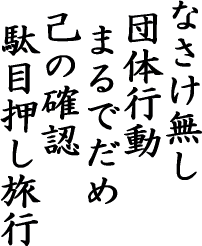 なさけ無し
団体行動
まるでだめ
己の確認
駄目押し旅行